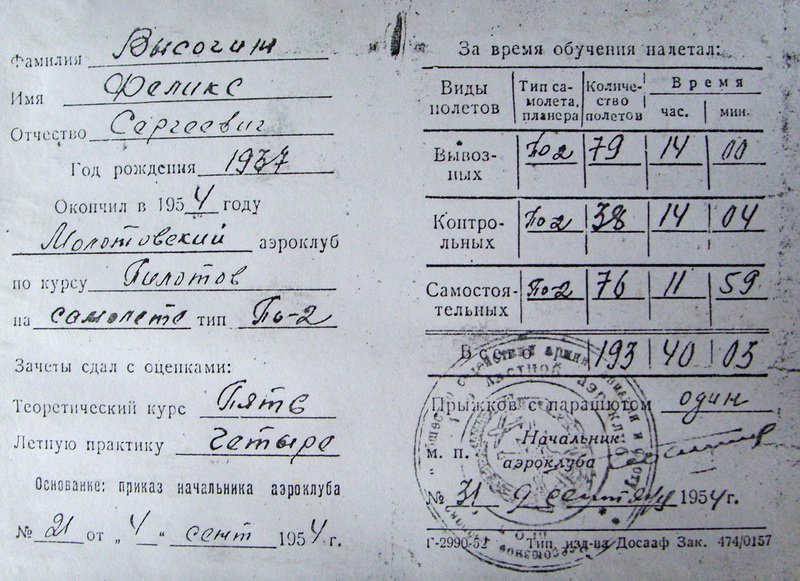 Фамилия Высогин
Имя Феликс
Отчество Сергеевич
Год рождения 1937
Окончил в 1954 году
Молотовский аэроклуб
по курсу Пилотов
на самолете тип По-2
Зачеты сдал с оценками:
Теоретический курс Пять
Летную практику Четыре
Основание: приказ начальника аэроклуба
№ 21 от „4“ сент 1954 г.
За время обучения налетал:
Виды полетов Тип самолета, планера Количество полетов Время
час. мин.
Вывозных По-2 79 14 00
Контрольных По-2 38 14 04
Самостоятельных По-2 76 11 59
Всего 193 40 03
Прыжков с парашютом один
Начальник
м. п. аэроклуба
№ 31 9 сентября 1954 г.
Г-2990-52 Тип. изд-ва Досааф Зак. 474/0157